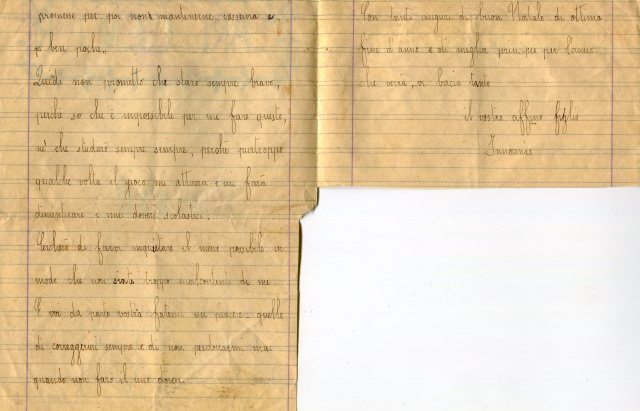 promesse per poi non mantenerne nessuna e
o ben poche.
Quindi non prometto che starò sempre bravo,
perchè so che è impossibile per me fare questo,
nè che studierò sempre sempre, perchè purtroppo
qualche volta il gioco mi attana e mi farà
dimenticare i miei doveri scolastici.
Cercherò di farvi inquietare il meno possibile in
modo che non siate troppo malcontenti di me
E voi da parte vostra fatemi un piacere: quello
di correggermi sempre e di non perdonarmi mai
quando non farò il mio dovere.
Con tanti auguri di buon Natale di ottima
fine d'anno e di miglior principio per l'anno
che verrà, vi bacia tanto
il vostro aff.mo figlio
Innocenzo